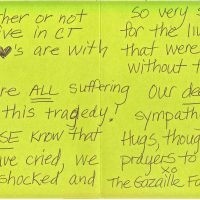 her or not
ve in CT
♥'s are with
re ALL suffering
this tragedy.
SE know that
ve cried, we
shocked and
So very s
for the li
that were
without t
Our de
sympath
Hugs, though
prayers to
xo
The Gazaille Fa